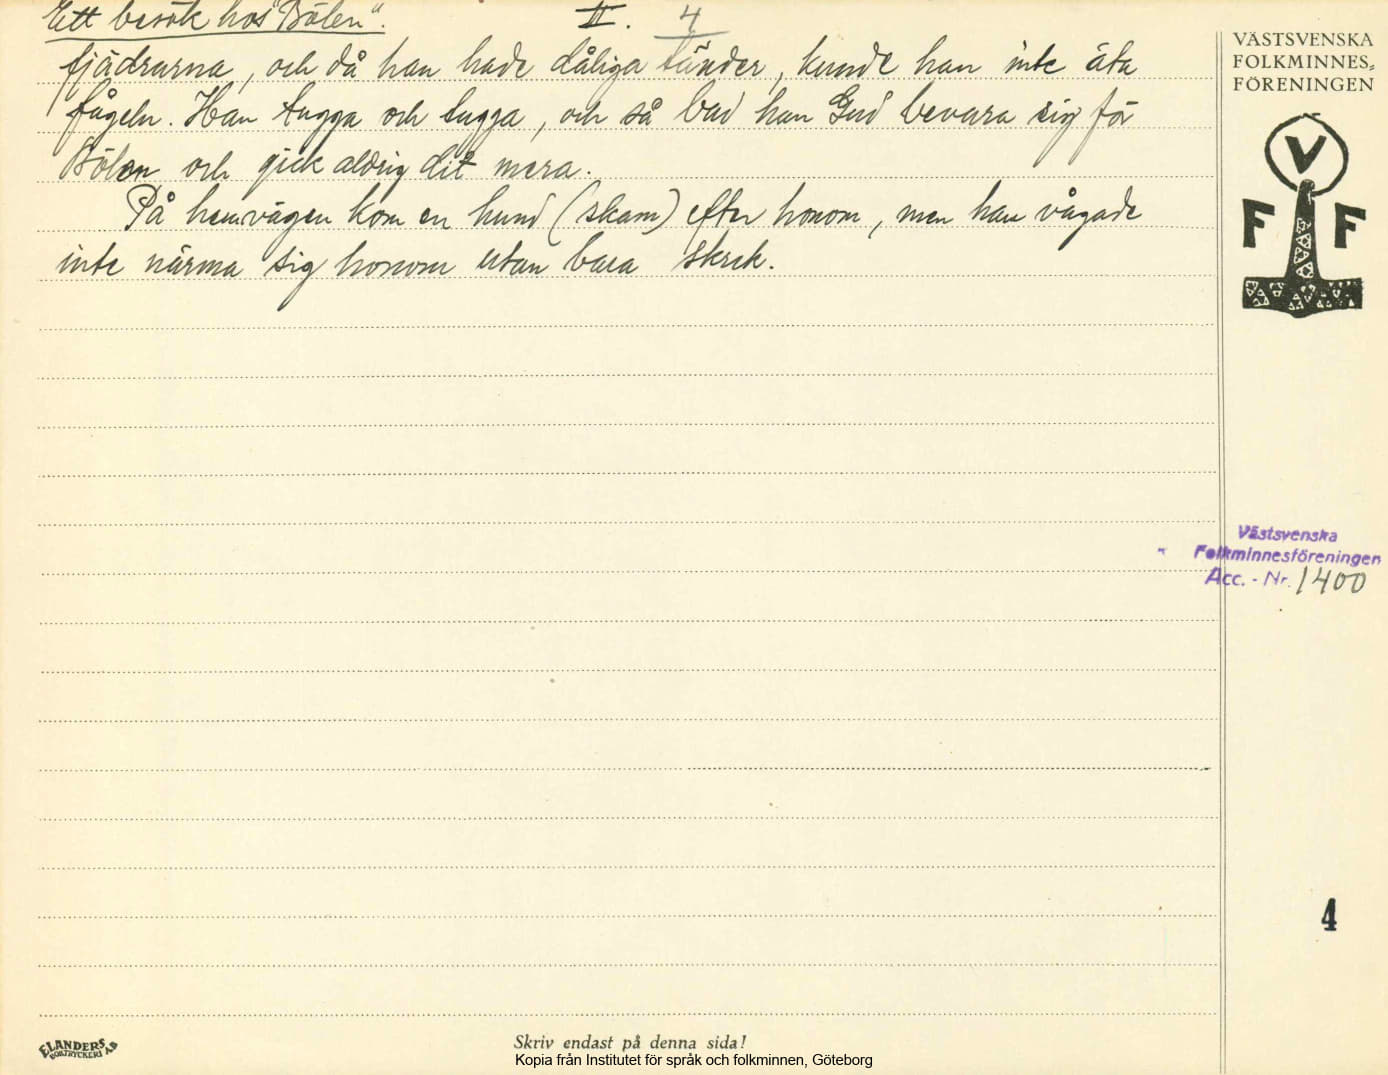 Ett besök hos "Bölen". II. 4
fjädrarna, och då han hade dåliga tänder, kunde han inte äta
fågeln. Han tugga och tugga, och så bad han Gud bevara sig för
Bölen och gick aldrig dit mera.
På hemvägen kom en hund (skam) efter honom, men han vågade
inte närma sig honom utan bara skrek.
VÄSTSVENSKA
FOLKMINNES-
FÖRENINGEN
V
F F
Västsvenska
Folkminnesföreningen
Acc. - Nr. 1400
4
ELANDERS
BOKTRYCKERI AB
Skriv endast på denna sida!
Kopia från Institutet för språk och folkminnen, Göteborg